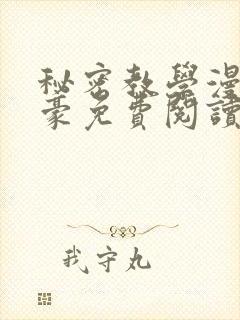 秘密教學漫
豪免費閱讀
我守丸